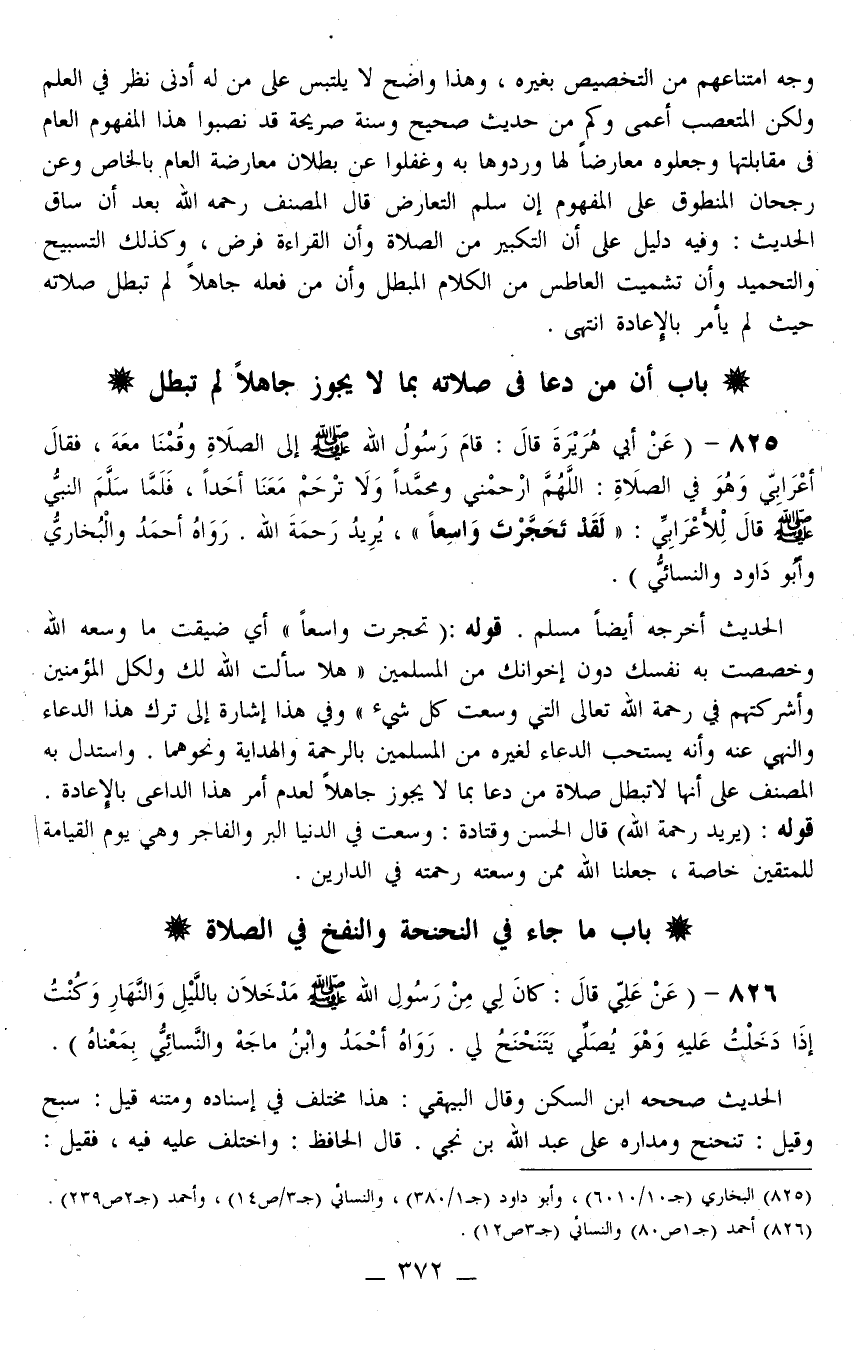 وجه امتناعهم من التخصيص بغيره ، وهذا واضح لا يلتبس على من له أدنى نظر في العلم
ولكن المتعصب أعمى وكم من حديث صحيح وسنة صريحة قد نصبوا هذا المفهوم العام
فى مقابلتها وجعلوه معارضاً لها وردوها به وغفلوا عن بطلان معارضة العام بالخاص وعن
رجحان المنطوق على المفهوم إن سلم التعارض قال المصنف رحمه الله بعد أن ساق
الحديث : وفيه دليل على أن التكبير من الصلاة وأن القراءة فرض ، وكذلك التسبيح
والتحميد وأن تشميت العاطس من الكلام المبطل وأن من فعله جاهلاً لم تبطل صلاته
حيث لم يأمر بالإعادة انتهى .
باب أن من دعا فى صلاته بما لا يجوز جاهلاً لم تبطل
٨٢٥ – ( عَنْ أبي هُرَيْرَةَ قالَ : قامَ رَسُولُ الله ﷺ إلى الصلَاةِ وقُمْنَا معَهَ ، فقالَ
أعْرَابِيّ وَهُوَ في الصلَاةِ : اللَّهُمَّ ارْحمْني ومحمَّداً وَلَا ترْحَمْ مَعَنَا أحَداً ، فَلَمَّا سَلَّمَ النبيُّ
ﷺ قالَ لِلأَعْرَابِيِّ : « لَقَدْ تَحَجَّرْتَ وَاسِعاً » ، يُرِيدُ رَحمَةَ الله . رَوَاهُ أحمَدُ والْبُخاريُّ
وأبُو دَاود والنسائيُّ ) .
الحديث أخرجه أيضاً مسلم . قوله :( تحجرت واسعاً » أي ضيقت ما وسعه الله
وخصصت به نفسك دون إخوانك من المسلمين « هلا سألت الله لك ولكل المؤمنين
وأشركتهم في رحمة الله تعالى التي وسعت كل شيء » وفي هذا إشارة إلى ترك هذا الدعاء
والنهي عنه وأنه يستحب الدعاء لغيره من المسلمين بالرحمة والهداية ونحوهما . واستدل به
المصنف على أنها لاتبطل صلاة من دعا بما لا يجوز جاهلاً لعدم أمر هذا الداعى بالإعادة .
قوله : (يريد رحمة الله) قال الحسن وقتادة : وسعت في الدنيا البر والفاجر وهي يوم القيامة
للمتقين خاصة ، جعلنا الله ممن وسعته رحمته في الدارين .
باب ما جاء في النحنحة والنفخ في الصلاة
٨٢٦ – ( عَنْ عَلِيّ قالَ : كانَ لِي مِنْ رَسُولِ الله ﷺ مَدْخَلاَن باللَّيْلِ وَالنَّهَارِ وَكُنْتُ
إذَا دَخَلْتُ عَليهِ وَهْوَ يُصَلِّي يَتَنَحْنَحُ لي . رَوَاهُ أحْمَدُ وابْنُ ماجَهْ والنَّسائِيُّ بِمَعْناهُ ) .
الحديث صححه ابن السكن وقال البيهقي : هذا مختلف في إسناده ومتنه قيل : سبح
وقيل : تنحنح ومداره على عبد الله بن نجي . قال الحافظ : واختلف عليه فيه ، فقيل :
(٨٢٥) البخاري (جـ٦٠١٠/١٠) ، وأبو داود (جـ٣٨٠/١) ، والنسائي (جـ٣/ص١٤) ، وأحمد (جـ٢ص٢٣٩) .
(٨٢٦) أحمد (جـ١ص٨٠) والنسائي (جـ٣ص١٢) .
– ٣٧٢ –